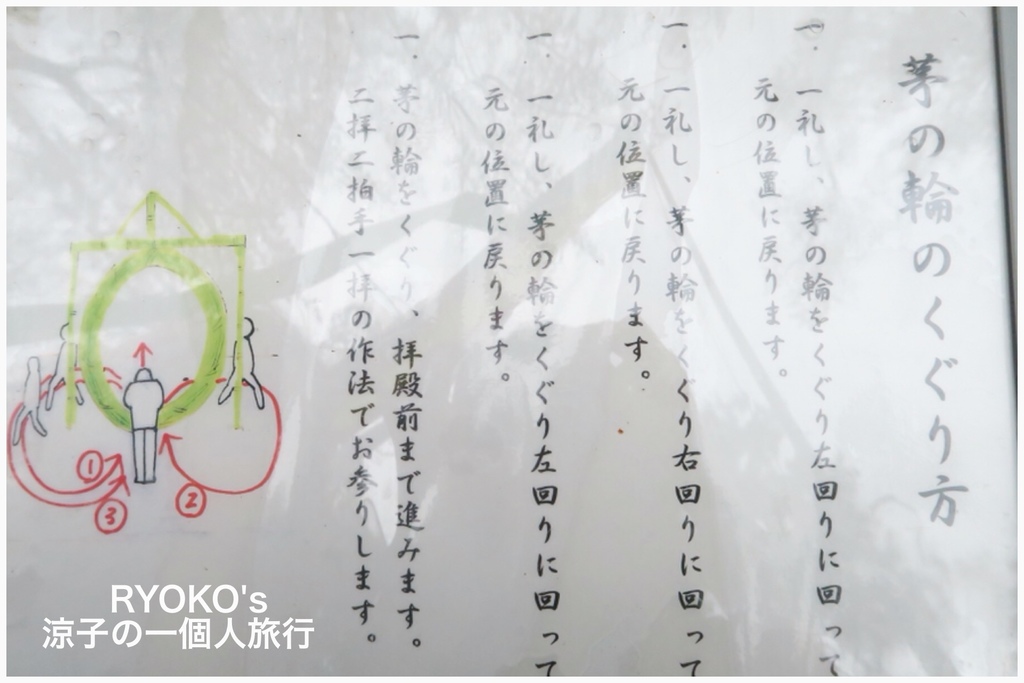 茅の輪のくぐり方
一. 一礼し、茅の輪をくぐり左回りに回って
元の位置に戻ります。
一. 一礼し、茅の輪をくぐり右回りに回って
元の位置に戻ります。
一. 一礼し、茅の輪をくぐり左回りに回って
元の位置に戻ります。
一. 茅の輪をくぐり、拝殿前まで進みます。
二拝二拍手一拝の作法でお参りします。
①
②
③
RYOKO's
涼子の一個人旅行